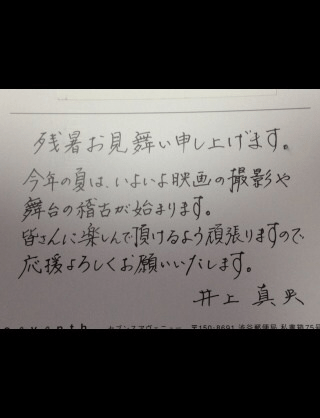 残暑お見舞い申し上げます。
今年の夏は、いよいよ映画の撮影や
舞台の稽古が始まります。
皆さんに楽しんで頂けるよう頑張りますので、
応援よろしくお願いいたします。
井上 真央
seventh セブンスアヴェニュー 〒150-8691 渋谷郵便局 私書箱75号